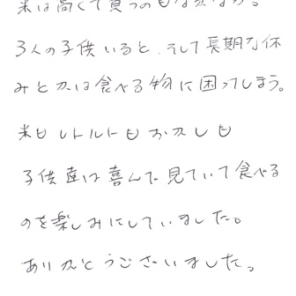 米は高くて買うのもなかなか。
3人の子供いると、そして長期な休
みとかは食べる物に困ってしまう。
米もレトルトもおかしも
子供達は喜んで見ていて食べる
のを楽しみにしていました。
ありがとうございました。